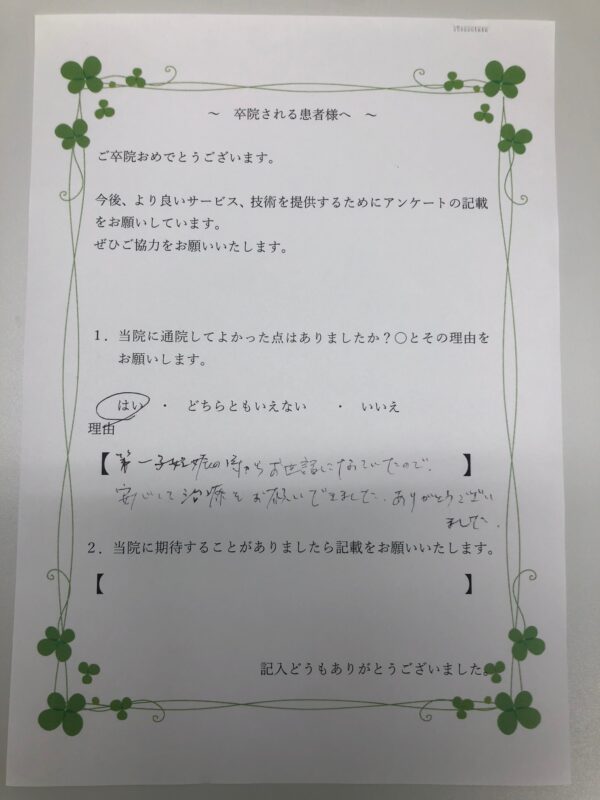 ～　卒院される患者様へ　～
ご卒院おめでとうございます。
今後、より良いサービス、技術を提供するためにアンケートの記載
をお願いしています。
ぜひご協力をお願いいたします。
１．当院に通院してよかった点はありましたか？〇とその理由を
お願いします。
はい　・　どちらともいえない　・　いいえ
理由
【第一子妊娠の時からお世話になっていたので、】
安心して治療をお願いできました。ありがとうござい
ました。
２．当院に期待することがありましたら記載をお願いいたします。
【　】
記入どうもありがとうございました。